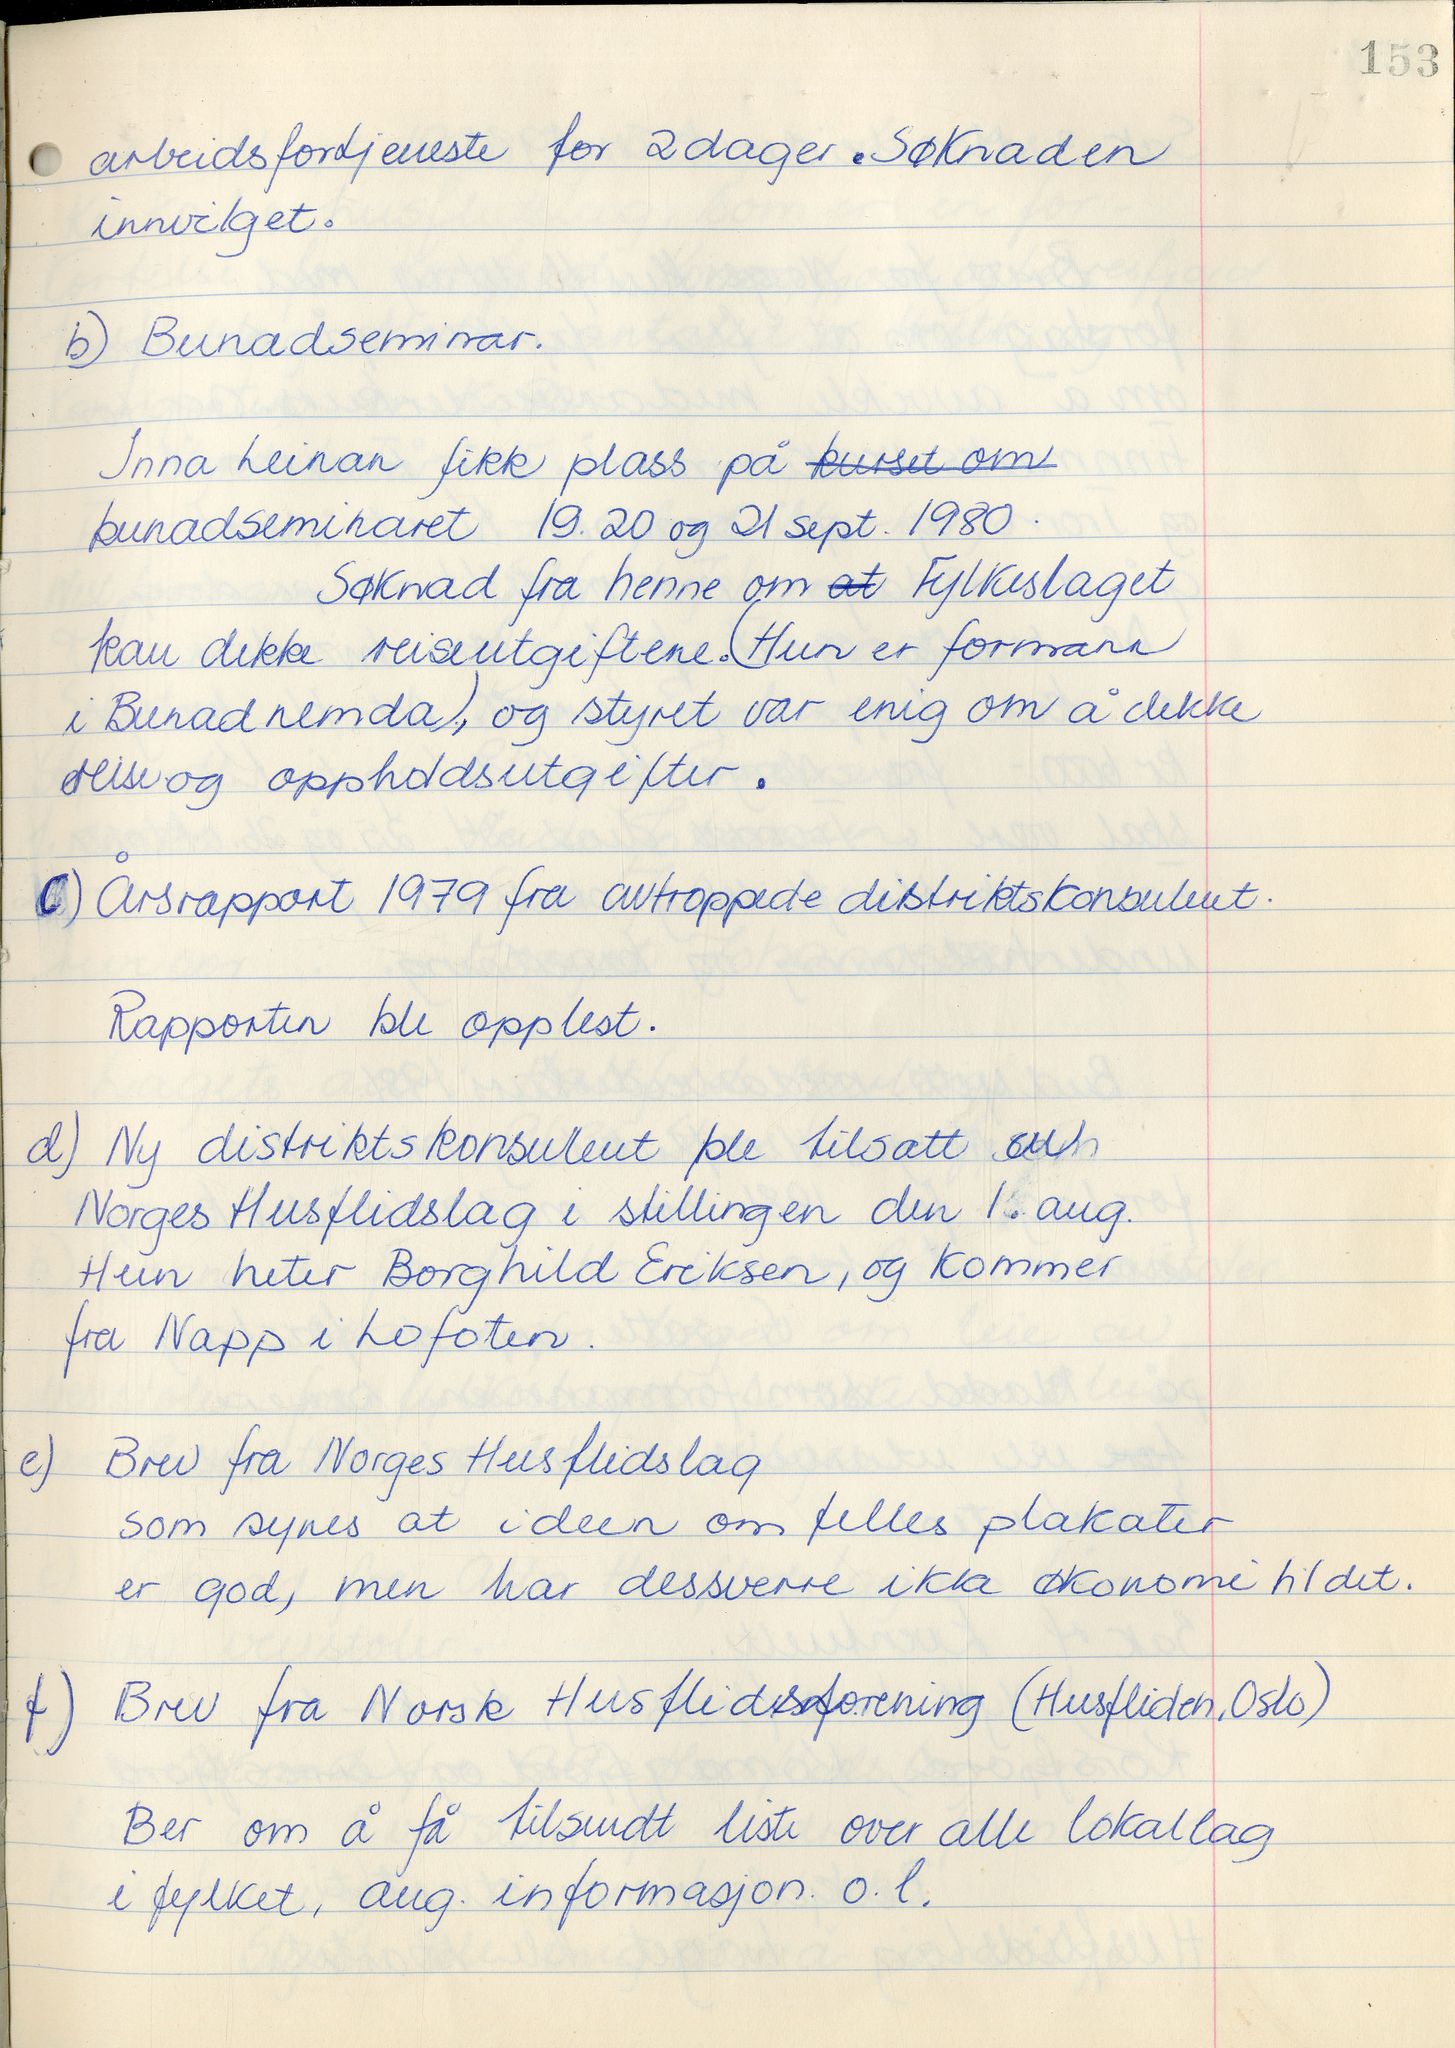 153
arbeidsfortjeneste for 2 dager. Søknaden
innvilget.
b) Bunadseminar.
Inna Leinan fikk plass på kurset om
bunadseminaret 19. 20 og 21 sept. 1980.
Søknad fra henne om at Fylkeslaget
kan dekke reiseutgiftene. (Hun er formann
i Bunadnemda), og styret var enig om å dekke
reise og oppholdsutgifter.
c) Årsrapport 1979 fra avtroppede distriktskonsulent.
Rapporten ble opplest.
d) Ny distriktskonsulent ble tilsatt
Norges Husflidslag i stillingen den 1. aug.
Hun heter Borghild Eriksen, og kommer
fra Napp i Lofoten.
e) Brev fra Norges Husflidslag
som synes at ideen om felles plakater
er god, men har dessverre ikke økonomi til det.
f) Brev fra Norsk Husflidsforening (Husfliden, Oslo)
Ber om å få tilsendt liste over alle lokallag
i fylket, aug. informasjon. o.l.